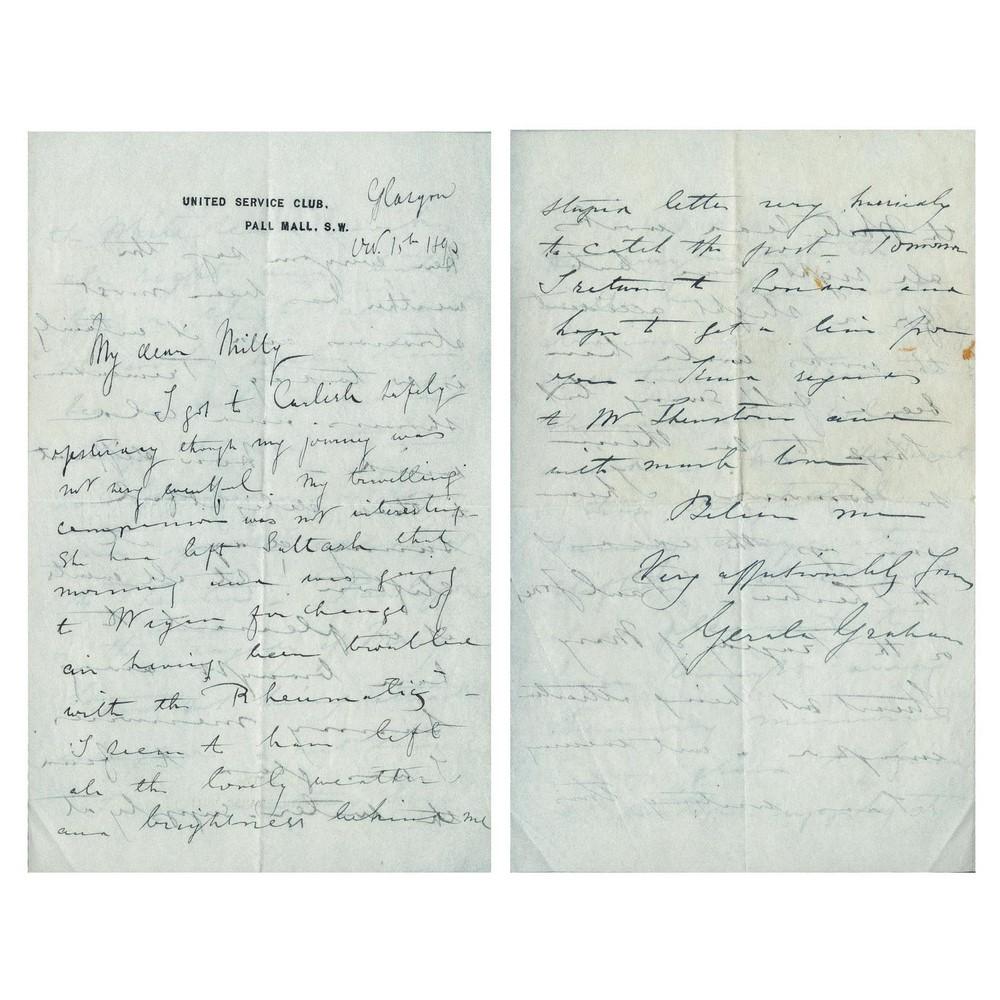 UNITED SERVICE CLUB,
PALL MALL. S.W.
Glasgow
Oct. 15th 1890
My dear Milly
I got to Carlisle safely
yesterday though my journey was
not very eventful. My travelling
companion was not interesting -
She had left Saltash that
morning and was going
to Wigan for change of
air having been troubled
with the "Rheumatics" -
I seem to have left
all the lovely weather
and brightness behind me
stupid letter very hurriedly
to catch the post - Tomorrow
I return to London and
hope to get a line from
you - Kind regards
to Mr
and
with much love
Believe me
Very affectionately Yours
Gerald Graham